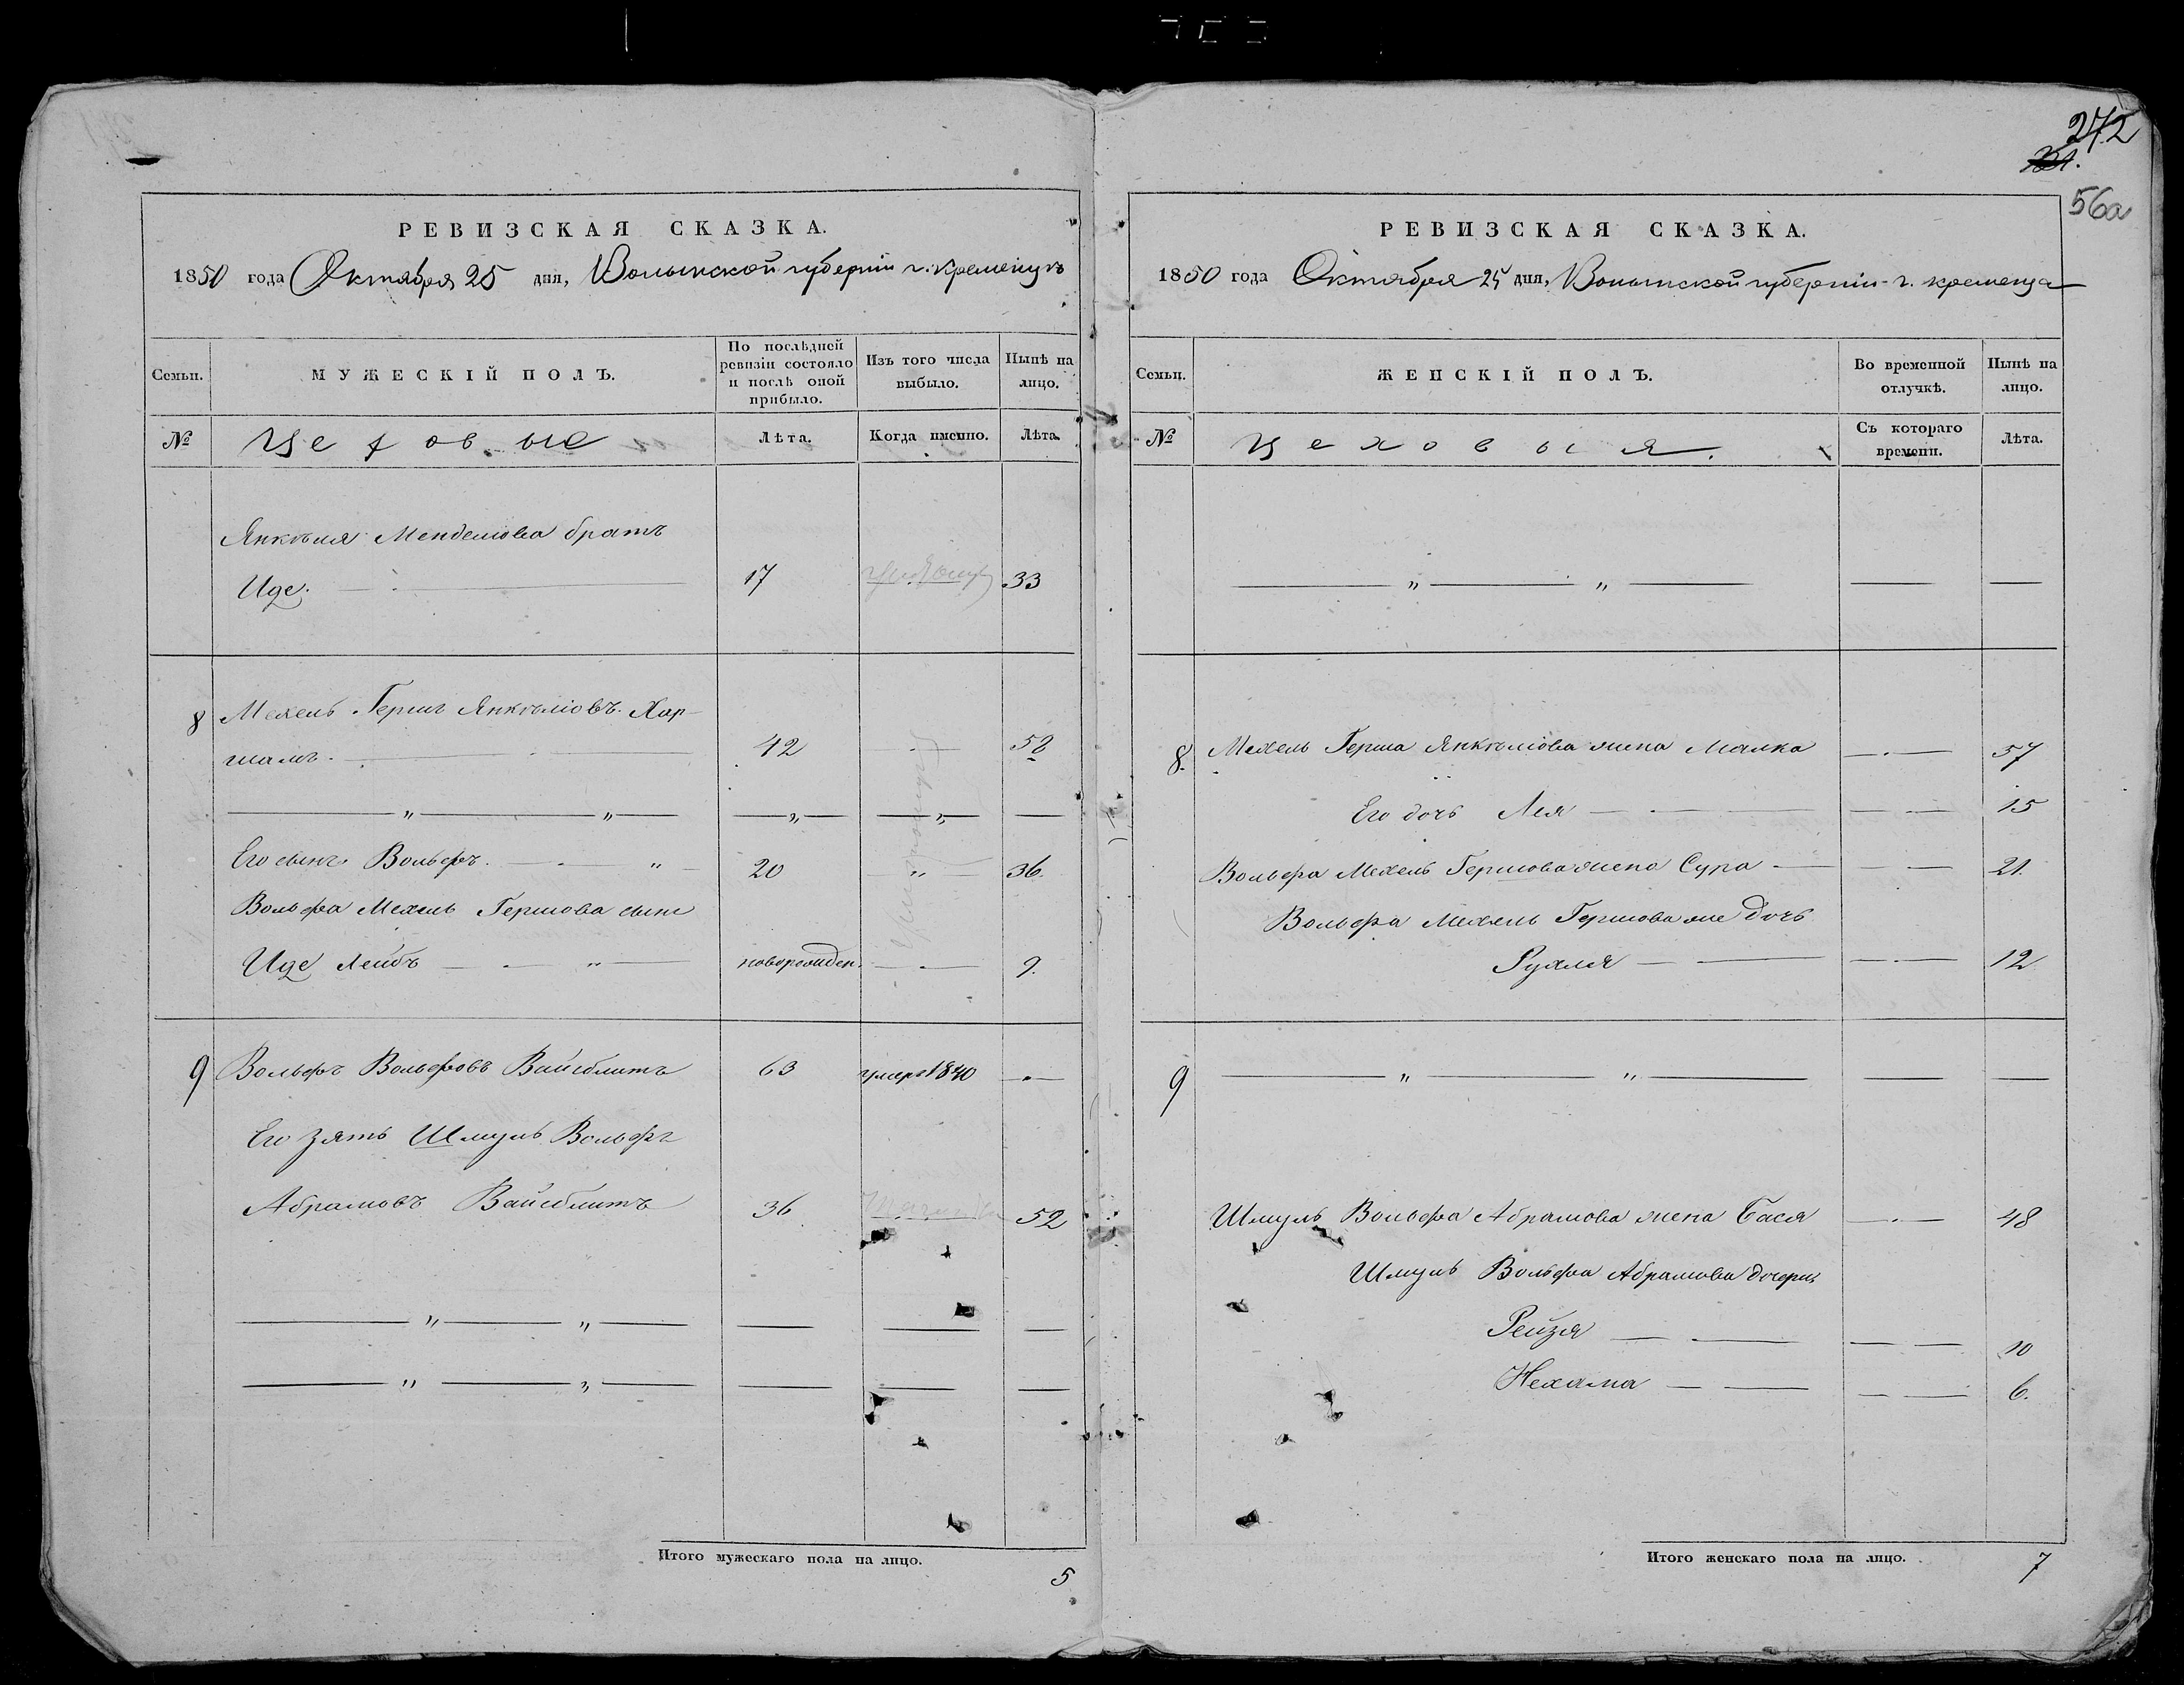 272
56а
РЕВИЗСКАЯ СКАЗКА.
1850 года Октября 25 дня, Волынской губерніи г. Кременцъ
Семьи. МУЖЕСКІЙ ПОЛЪ. По послѣдней ревизіи состояло и послѣ оной прибыло. Изъ того числа выбыло. Нынѣ на лицо.
№ Цеховые Лѣта. Когда именно. Лѣта.
Янкеля Менделюва братъ
Иде. 17 33
8 Мехель Гершъ Янкелювъ Хар-
шалъ. 42 58
" " " "
Его сынъ Вольфъ. " 20 " 36.
Вольфа Мехель Гершова сынъ
Иде Лейбъ " новорожден. 9.
9 Вольфъ Вольфовъ Вайсблитъ 63 умеръ 1840
Его зять Шмуль Вольфъ
Абрамовъ Вайсблитъ 36 52
" "
" "
Итого мужескаго пола на лицо.
5
РЕВИЗСКАЯ СКАЗКА.
1850 года Октября 25 дня, Волынской губерніи г. Кременца
Семьи. ЖЕНСКІЙ ПОЛЪ. Во временной отлучкѣ. Нынѣ на лицо.
№ Цеховыя. Съ котораго времени. Лѣта.
" "
8. Мехель Герша Янкелюва жена Малка 57
Его дочь Лея 15
Вольфа Мехель Гершова жена Сура 21.
Вольфа Мехель Гершова же дочь
Рухля 12
9 " "
Шмуль Вольфа Абрамова жена Бася 48
Шмуль Вольфа Абрамова дочери
Рейзя 10
Нехама 6.
Итого женскаго пола на лицо.
7